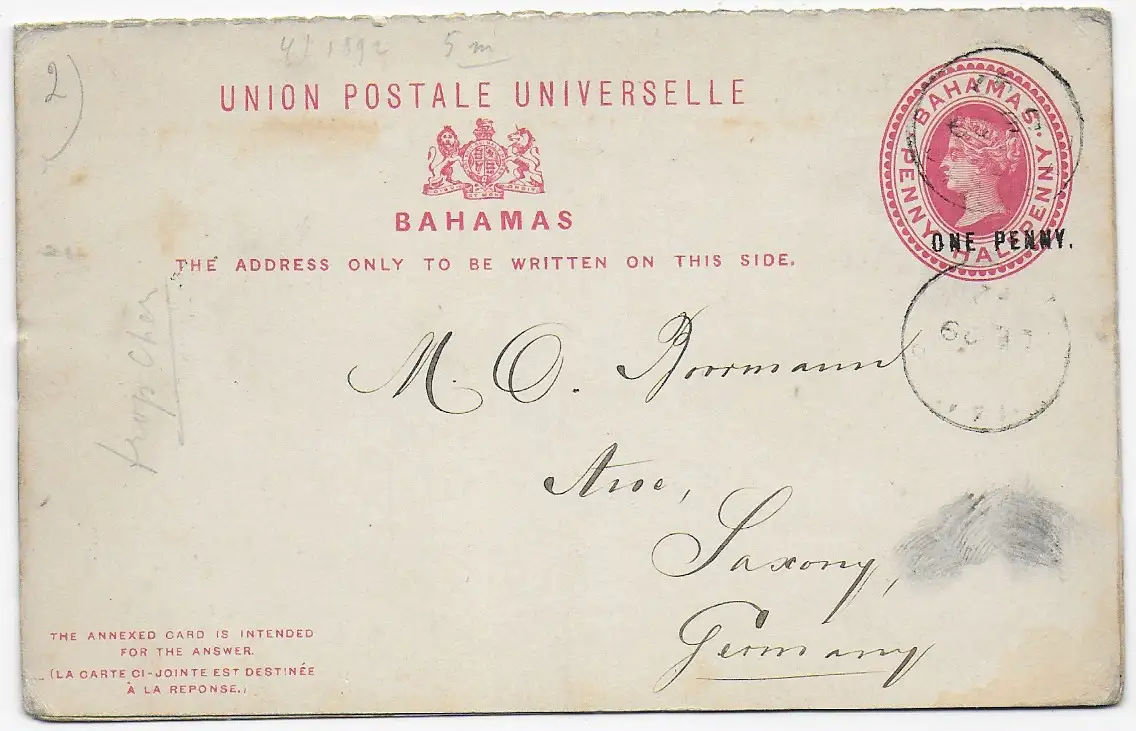 2)
1892 5 m
UNION POSTALE UNIVERSELLE
BAHAMAS
THE ADDRESS ONLY TO BE WRITTEN ON THIS SIDE.
BAHAMAS.
PENNY HALFPENNY
ONE PENNY.
M. O. Borrmann
Aue,
Saxony,
Germany
THE ANNEXED CARD IS INTENDED
FOR THE ANSWER.
(LA CARTE CI-JOINTE EST DESTINÉE
À LA REPONSE.)